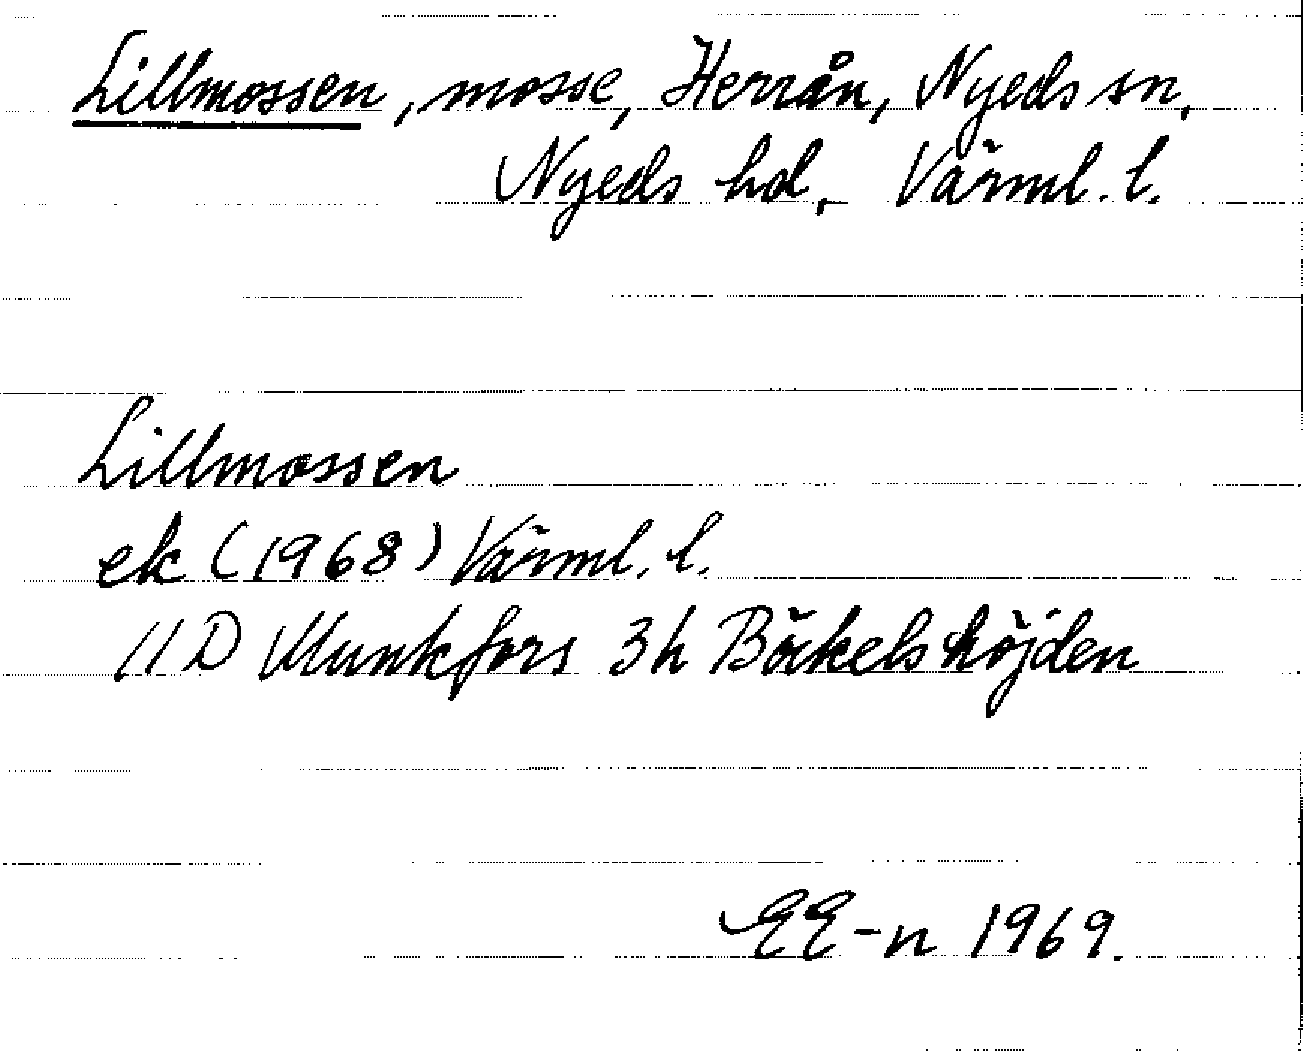 Lillmossen, mosse, Herrån, Nyeds sn,
Nyeds hd, Värml. l.
Lillmossen
ek (1968) Värml. l.
11D Munkfors 3h Böckelshöjden
EE-n 1969.